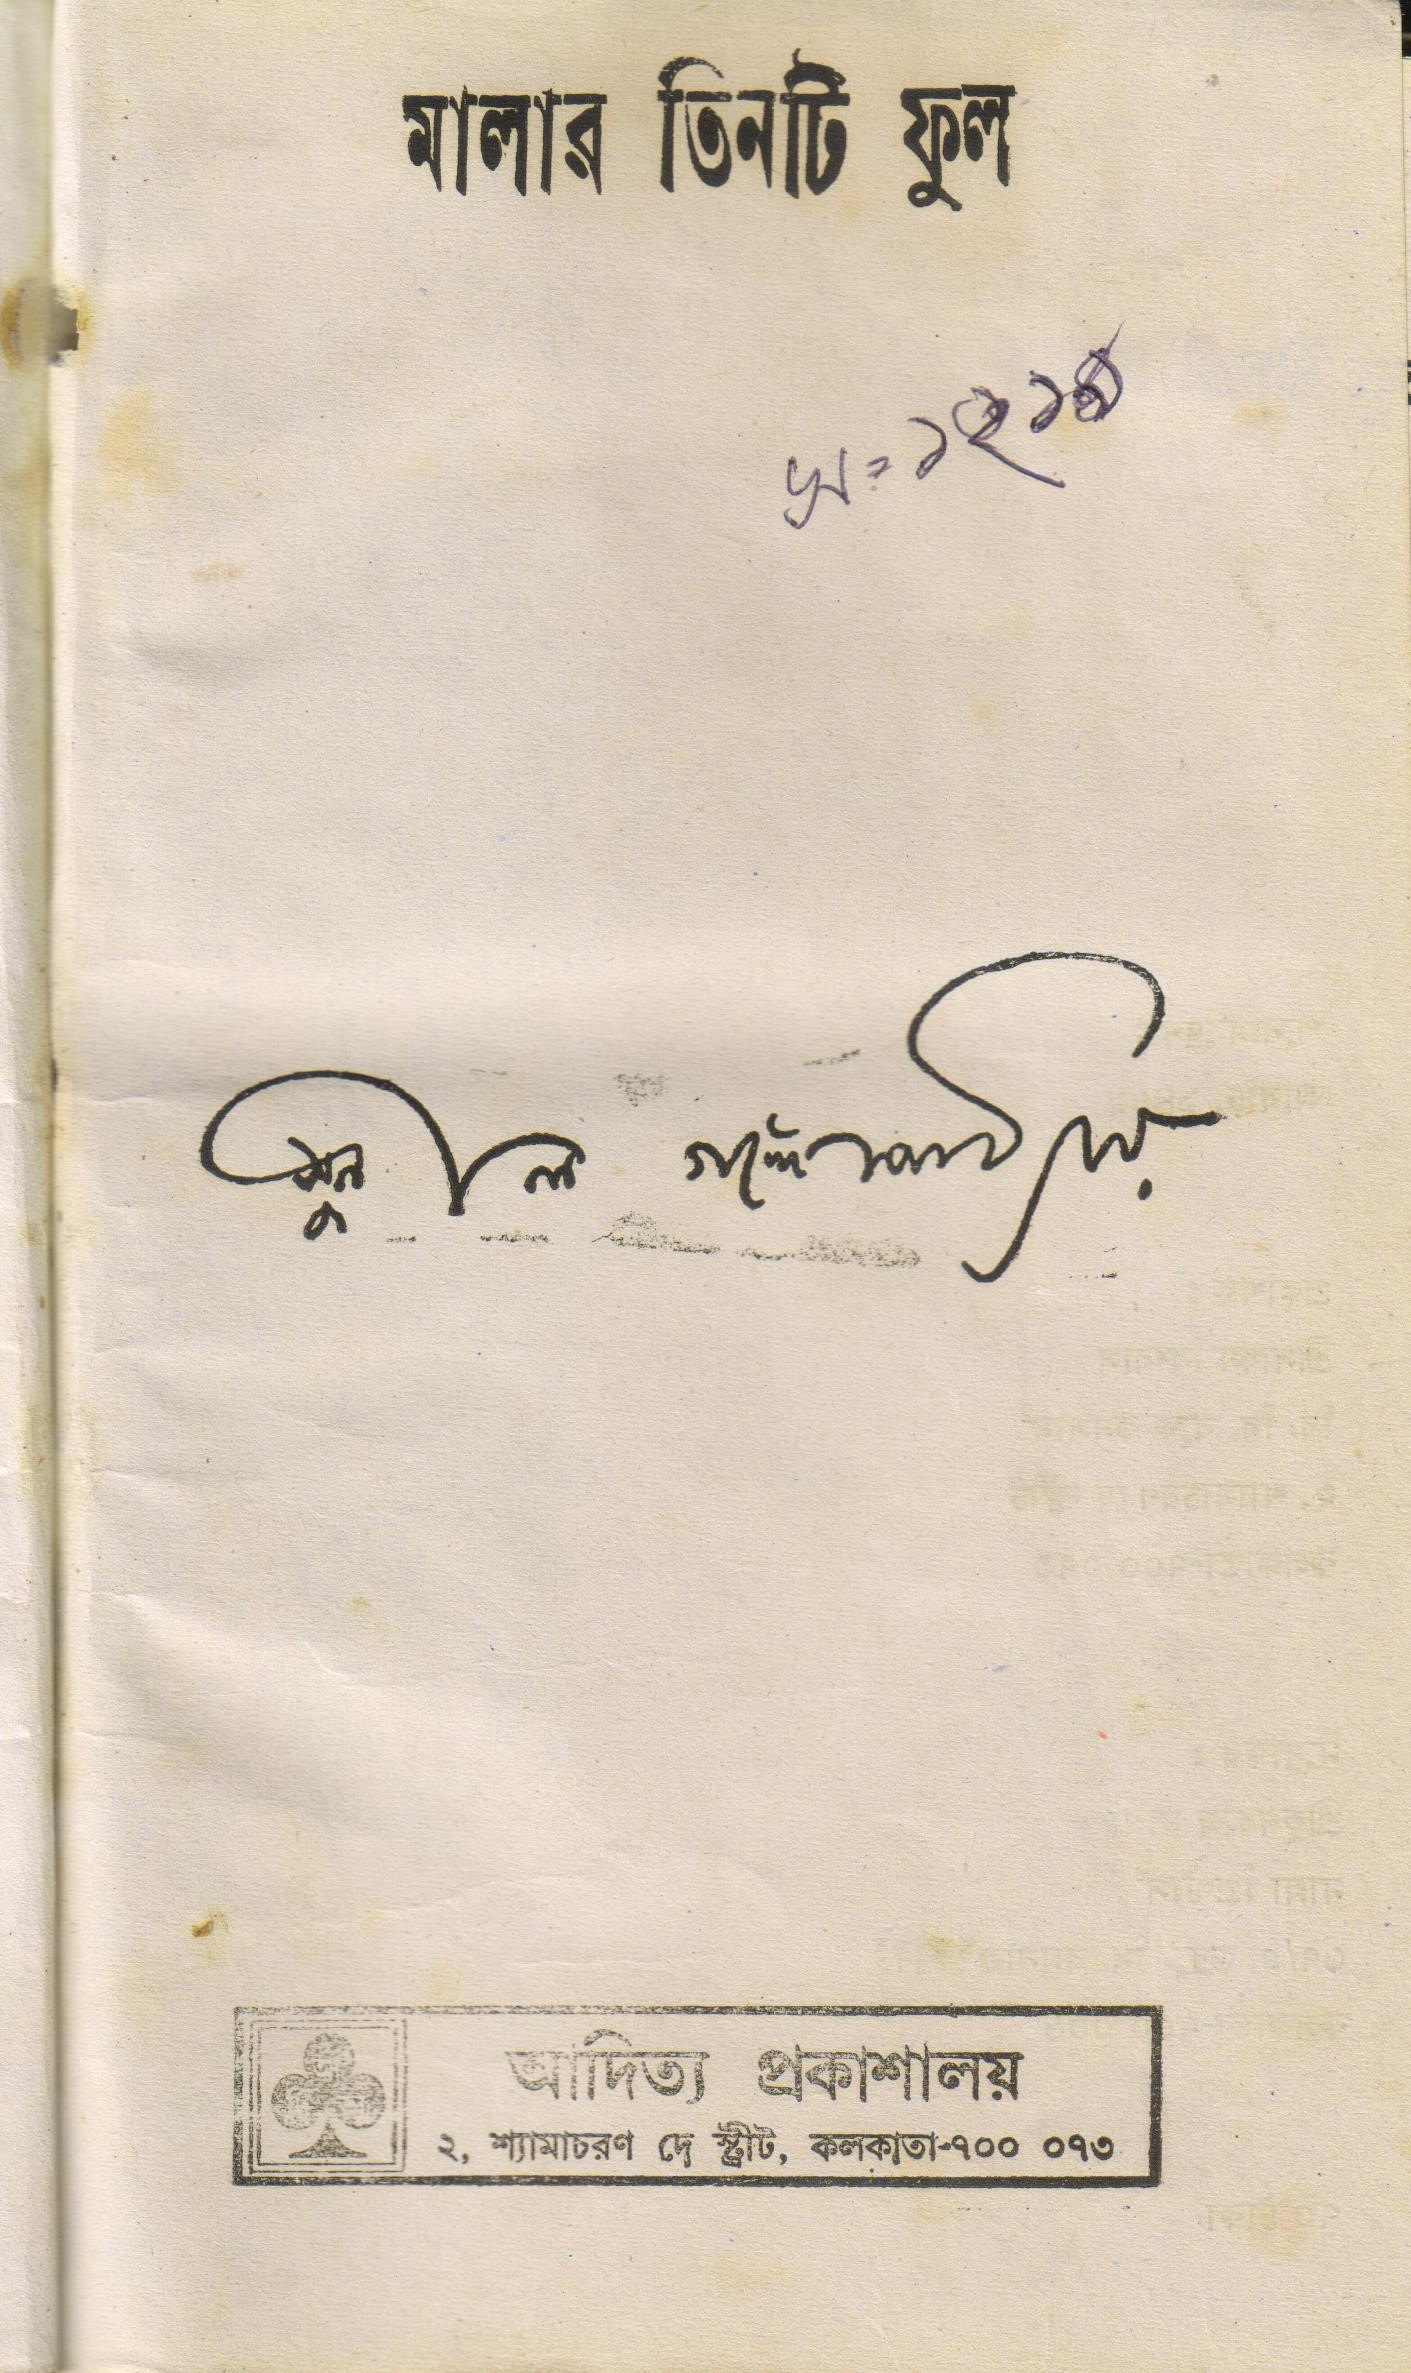 মালার তিনটি ফুল
সুনীল গঙ্গোপাধ্যায়
আদিত্য প্রকাশালয়
২, শ্যামাচরণ দে স্ট্রীট, কলকাতা-৭০০ ০৭৩